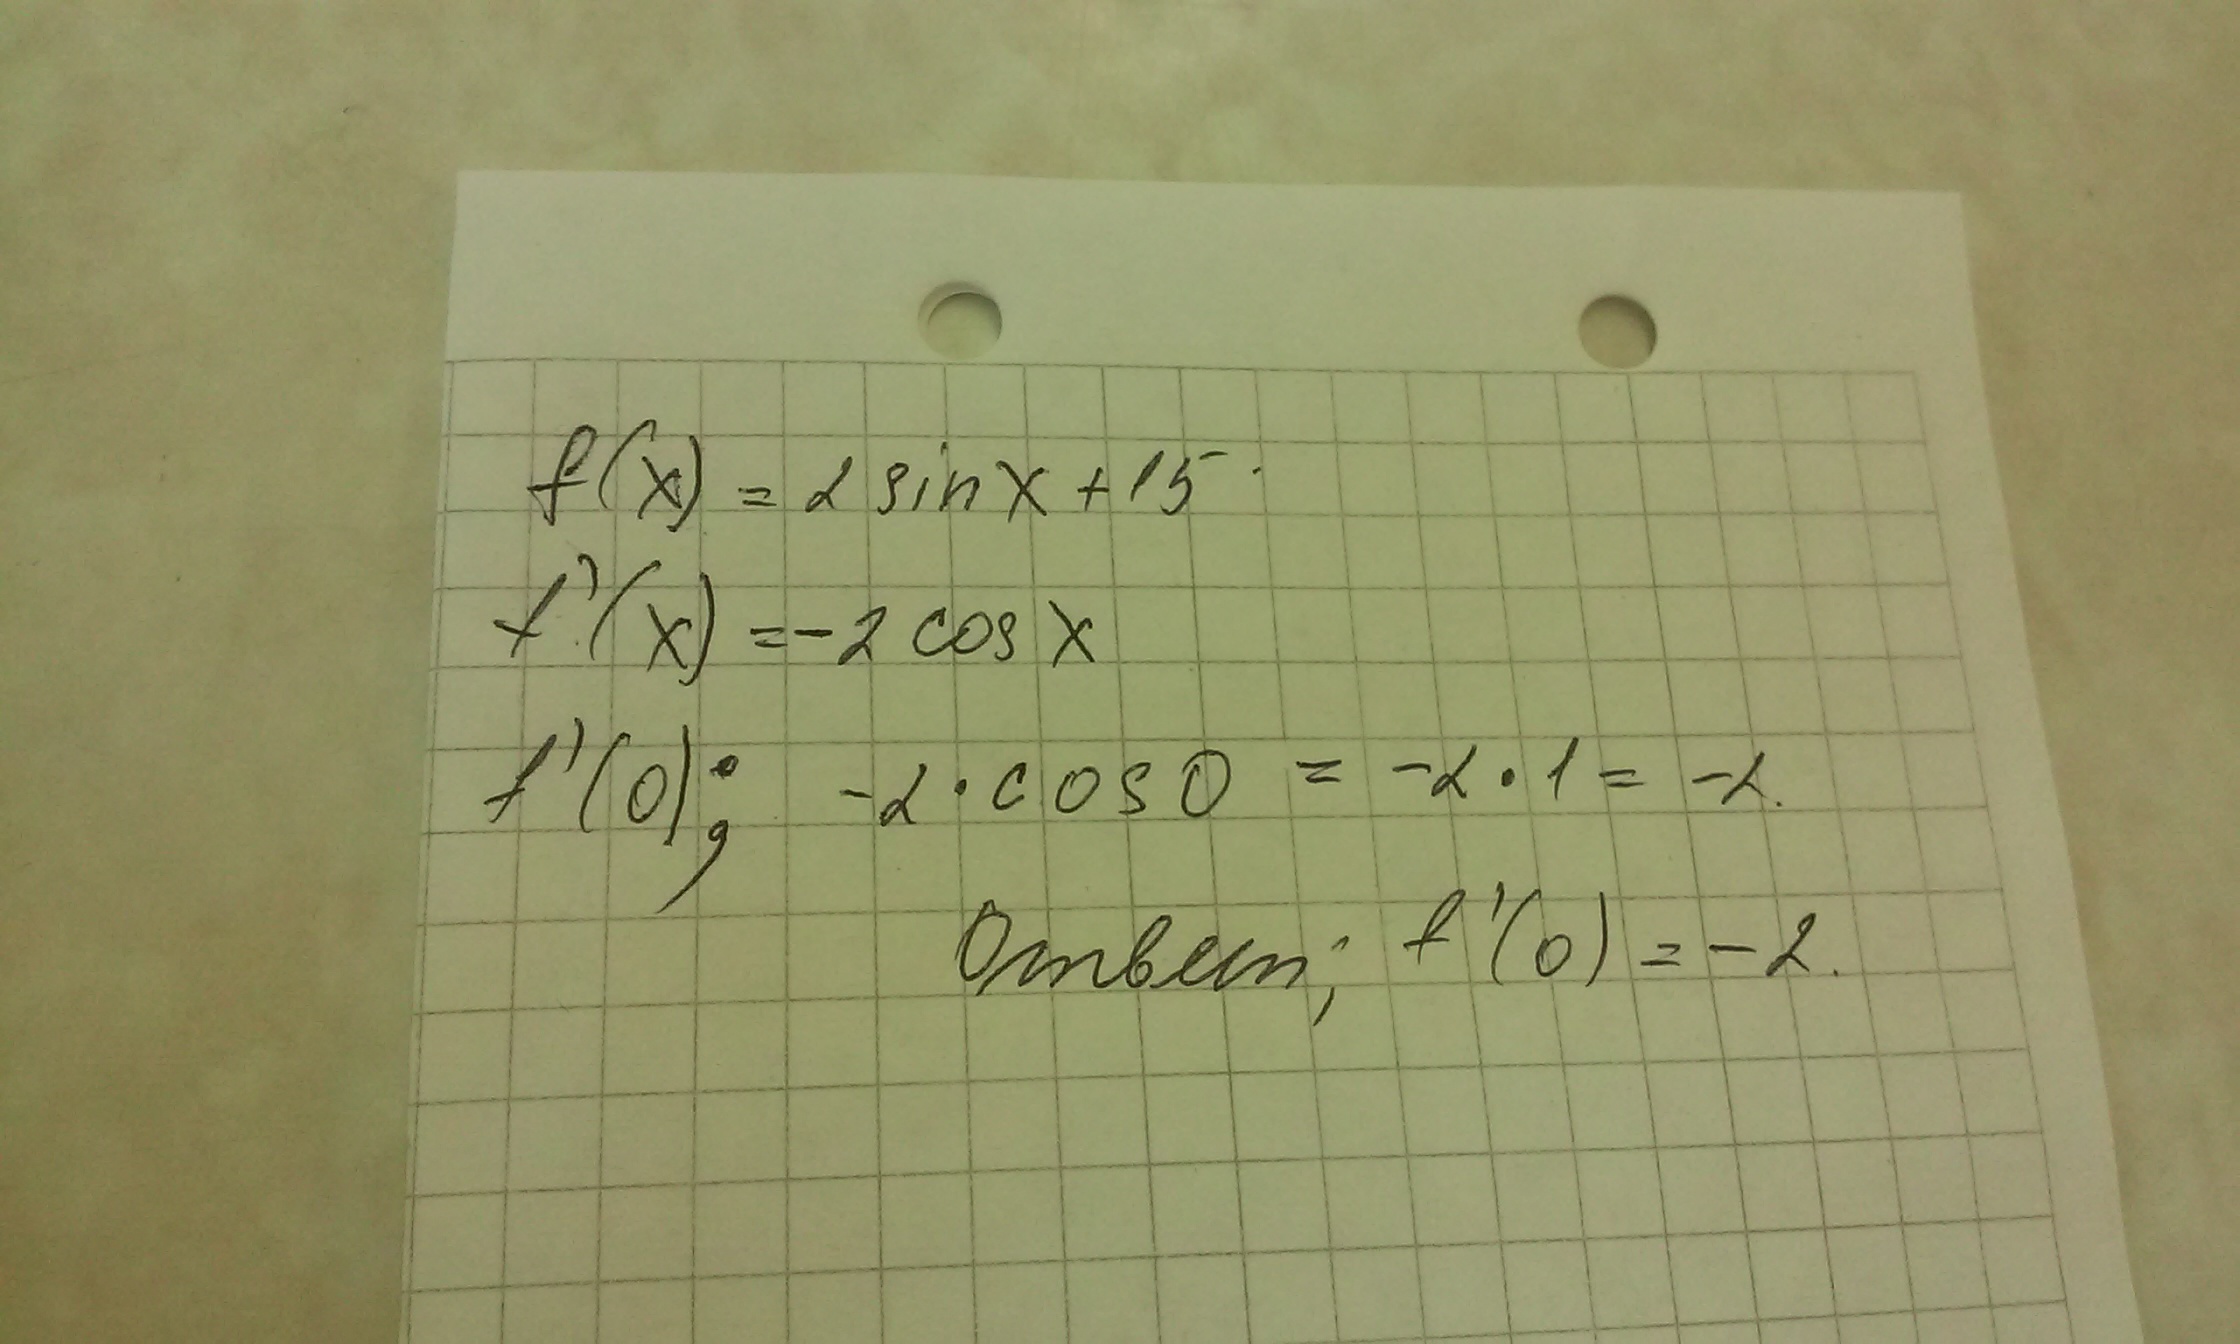 f(x) = 2 sin x + 15
f'(x) = -2 cos x
f'(0); -2 · cos 0 = -2 · 1 = -2.
Ответ; f'(0) = -2.